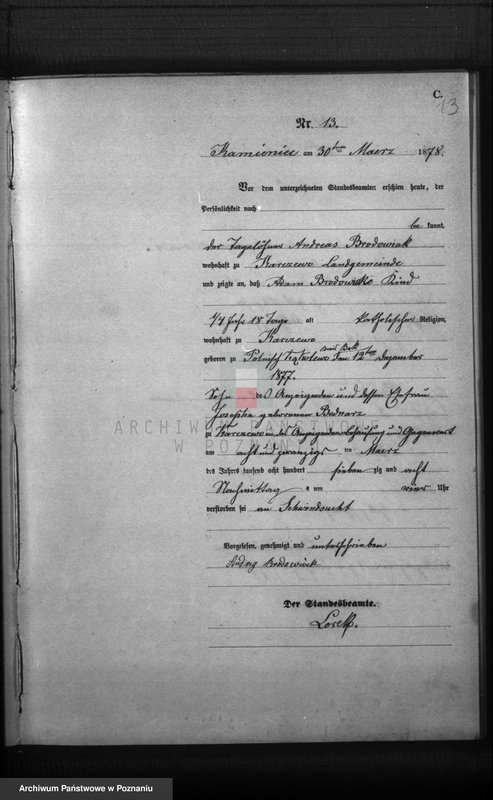 C.
13
Nr. 13.
Kamieniec am 30ten Maerz 1878.
Vor dem unterzeichneten Standesbeamten erschien heute, der
Persönlichkeit nach
be kannt,
der Tagelöhner Andreas Brodowiak
wohnhaft zu Karczewo Landgemeinde
und zeigte an, daß Adam Brodowiak Kind
1/4 Jahr 18 Tage alt katholischer Religion,
wohnhaft zu Karczewo
geboren zu Polnisch den 12ten Dezember
1877.
Sohn des Anzeigenden und dessen Ehefrau
Josepha geborenen Bednarz
zu Karczewo in des Anzeigenden Behausung und Gegenwart
am acht und zwanzigs ten Maerz
des Jahres tausend acht hundert sieben zig und acht
Nachmittag s um vier Uhr
verstorben sei an Schwindsucht
Vorgelesen, genehmigt und unterschrieben
Andrzy Brodowiack
Der Standesbeamte.
ARCHIWUM PAŃSTWOWE
W POZNANIU
Archiwum Państwowe w Poznaniu